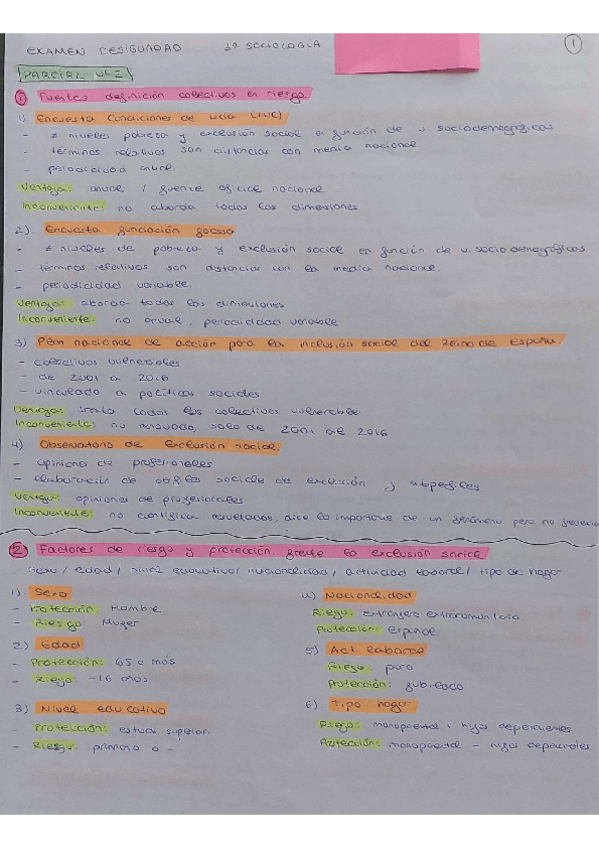 EXAMEN DESIGUALDAD 3º SOCIOLOGÍA 1
PARCIAL Nº 2
1 Fuentes definición colectivos en riesgo
1) Encuesta Condiciones de vida (INE)
- ≠ niveles pobreza y exclusión social en función de v. sociodemográficas
- términos relativos son distancias con media nacional
- periodicidad anual
Ventaja: anual / fuente oficial nacional
Inconveniente: no aborda todas las dimensiones
2) Encuesta fundación foessa
- ≠ niveles de pobreza y exclusión social en función de v. sociodemográficas
- términos relativos son distancias con la media nacional.
- periodicidad variable
Ventaja: aborda todas las dimensiones
Inconveniente: no anual, periodicidad variable
3) Plan nacional de acción para la inclusión social del Reino de España
- colectivos vulnerables
- de 2001 a 2016
- vinculado a políticas sociales
Ventaja: trata todos los colectivos vulnerable
Inconveniente: no renovado, solo de 2001 al 2016
4) Observatorio de exclusión social.
- opiniones de profesionales
- elaboración de perfiles sociales de exclusión y subperfiles
Ventaja: opiniones de profesionales
Inconveniente: no cuantifica resultados, dice lo importante de un fenómeno pero no
2 Factores de riesgo y protección frente la exclusión social
Sexo / edad / nivel educativo / nacionalidad / actividad laboral / tipo de hogar
1) Sexo
- Protección: Hombre
- Riesgo: Mujer
2) Edad
- Protección: 65 o más
- Riesgo: -16 años
3) Nivel educativo
- Protección: estud superior
- Riesgo: primaria o -
4) Nacionalidad
Riesgo: extranjero extracomunitario
Protección: español
5) Act. laboral
Riesgo: paro
Protección: jubilado
6) Tipo hogar
Riesgo: monoparental + hijos dependientes
Protección: monoparental - hijos dependientes